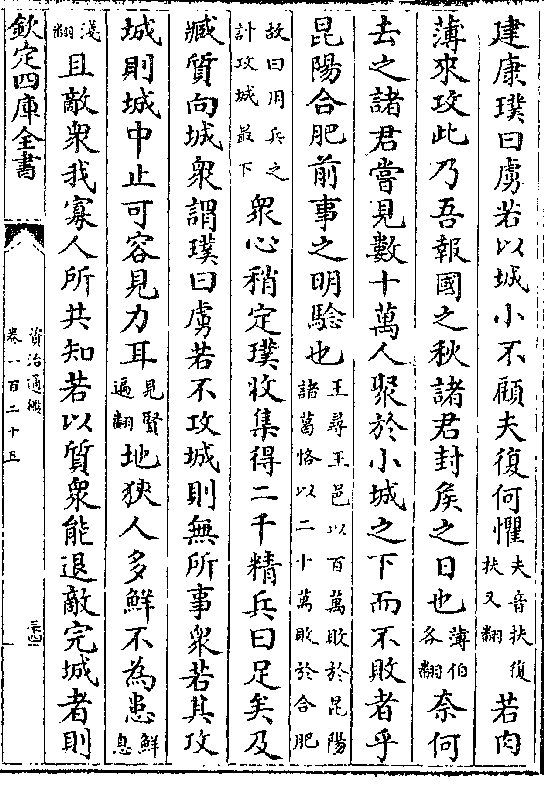 建康璞曰虜若以城小不顧夫復何懼夫音扶復扶又翻若肉
薄來攻此乃吾報國之秋諸君封侯之日也薄伯各翻奈何
去之諸君嘗見數十萬人聚於小城之下而不敗者乎
昆陽合肥前事之明驗也王尋王邑以百萬敗於昆陽諸葛恪以二十萬敗於合肥
故曰用兵之計攻城最下衆心稍定璞收集得二千精兵曰足矣及
臧質向城衆謂璞曰虜若不攻城則無所事衆若其攻
城則城中止可容見力耳見賢遍翻地狹人多鮮不為患鮮息
淺翻且敵衆我寡人所共知若以質衆能退敵完城者則
欽定四庫全書
資治通鑑
卷一百二十五
三四